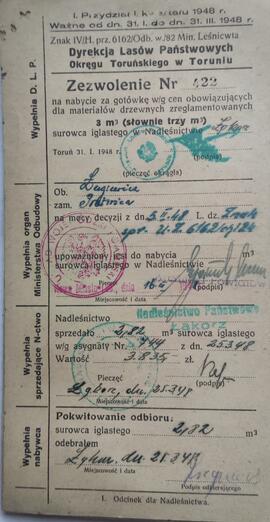 I. Przydział I. kwartału 1948 r.
Ważne od dn. 31. I. do dn. 31. III. 1948 r.
Znak IV/H. prz. 6162/Odb. w./82 Min. Leśnictwa
Dyrekcja Lasów Państwowych
Okręgu Toruńskiego w Toruniu
Wypełnia D. L. P.
Zezwolenie Nr 422
na nabycie za gotówkę w/g cen obowiązujących
dla materiałów drzewnych zreglamentowanych
3 m³ (słownie trzy m³)
surowca iglastego w Nadleśnictwie
Toruń 31. I. 1948 r.
(podpis)
(pieczęć okrągła)
Wypełnia organ
Ministerstwa Odbudowy
Ob.
zam.
na mocy decyzji z dn. 5.II.48 L. dz.
upoważniony jest do nabycia m³
surowca iglastego w Nadleśnictwie
Miejscowość i data
(podpis)
Wypełnia
sprzedające N-ctwo
Nadleśnictwo Państwowe
Łąkorz
Nadleśnictwo
sprzedało 2,82 m³ surowca iglastego
w/g asygnaty Nr 744 z dn. 25.3.48
Wartość 3.835 zł
Pieczęć
(podpis)
Łąkorz, dn. 25.3.48
Miejscowość i data
Wypełnia
nabywca
Pokwitowanie odbioru:
surowca iglastego 2,82 m³
odebrałem
dn. 25.3.48
Miejscowość i data
Podpis odbierającego
I. Odcinek dla Nadleśnictwa.